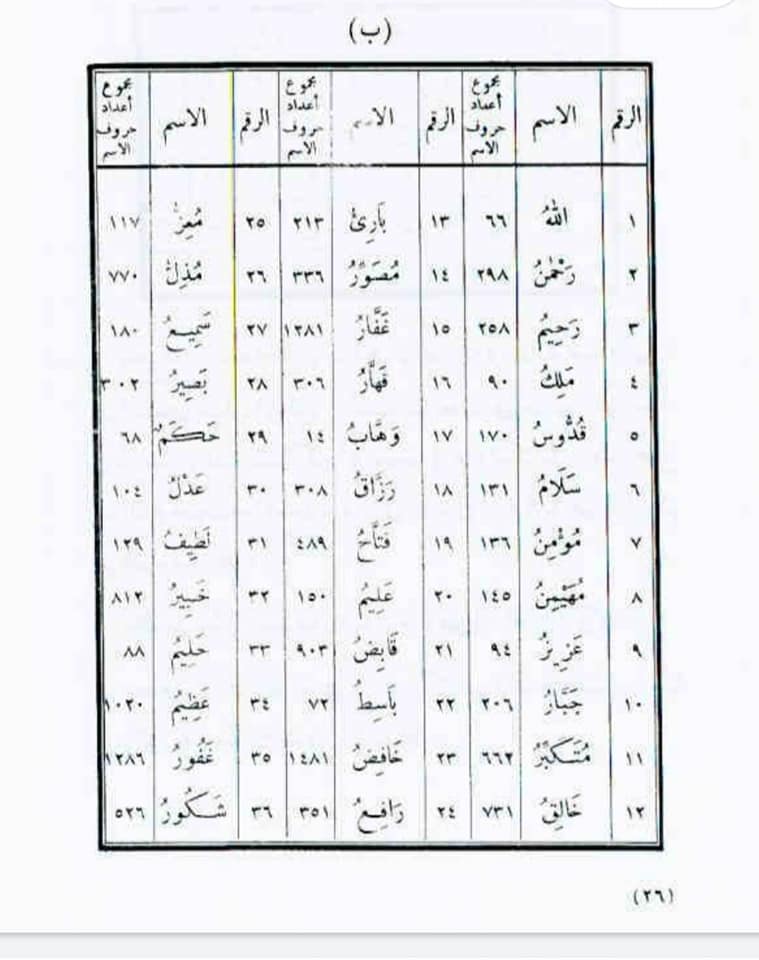 (ب)
الرقم الاسم مجموع أعداد حروف الاسم الرقم الاسم مجموع أعداد حروف الاسم الرقم الاسم مجموع أعداد حروف الاسم
١ اللهُ ٦٦ ١٣ بَارِئُ ٢١٣ ٢٥ مُعِزُّ ١١٧
٢ رَحْمٰنُ ٢٩٨ ١٤ مُصَوِّرُ ٣٣٦ ٢٦ مُذِلُّ ٧٧٠
٣ رَحِيمُ ٢٥٨ ١٥ غَفَّارُ ١٢٨١ ٢٧ سَمِيعُ ١٨٠
٤ مَلِكُ ٩٠ ١٦ قَهَّارُ ٣٠٦ ٢٨ بَصِيرُ ٣٠٢
٥ قُدُّوسُ ١٧٠ ١٧ وَهَّابُ ١٤ ٢٩ حَكَمُ ٦٨
٦ سَلَامُ ١٣١ ١٨ رَزَّاقُ ٣٠٨ ٣٠ عَدْلُ ١٠٤
٧ مُؤْمِنُ ١٣٦ ١٩ فَتَّاحُ ٤٨٩ ٣١ لَطِيفُ ١٢٩
٨ مُهَيْمِنُ ١٤٥ ٢٠ عَلِيمُ ١٥٠ ٣٢ خَبِيرُ ٨١٢
٩ عَزِيزُ ٩٤ ٢١ قَابِضُ ٩٠٣ ٣٣ حَلِيمُ ٨٨
١٠ جَبَّارُ ٢٠٦ ٢٢ بَاسِطُ ٧٢ ٣٤ عَظِيمُ ١٠٢٠
١١ مُتَكَبِّرُ ٦٦٢ ٢٣ خَافِضُ ١٤٨١ ٣٥ غَفُورُ ١٢٨٦
١٢ خَالِقُ ٧٣١ ٢٤ رَافِعُ ٣٥١ ٣٦ شَكُورُ ٥٢٦
(٢٦)